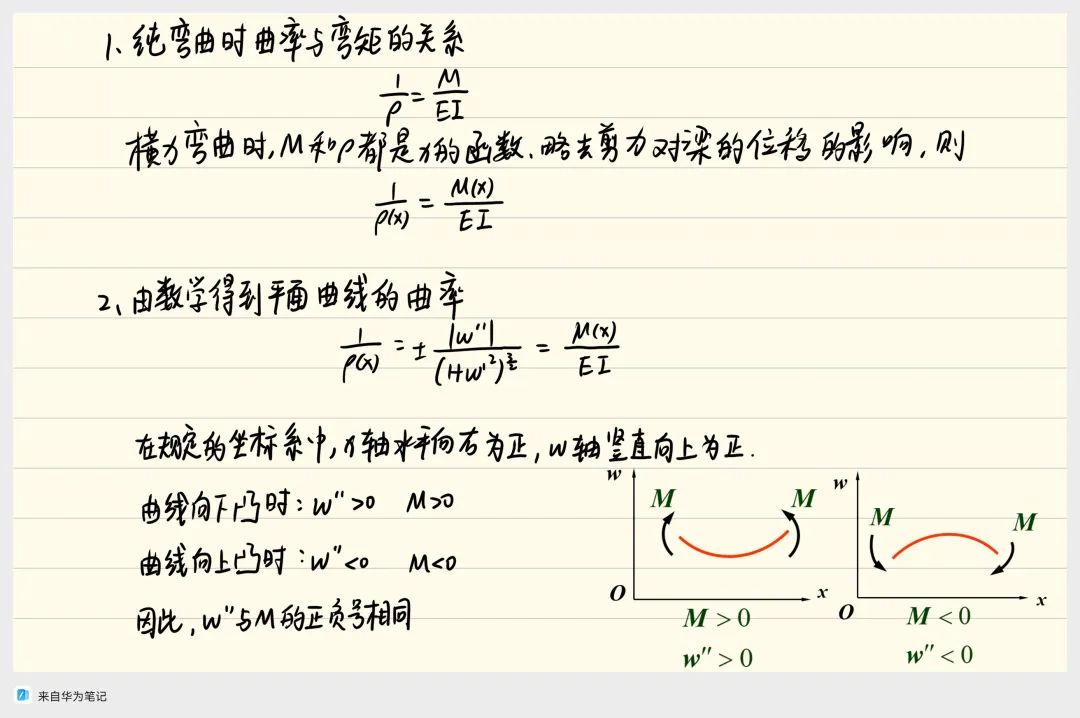 1、纯弯曲时曲率与弯矩的关系
1/ρ = M/EI
横力弯曲时,M和ρ都是x的函数、略去剪力对梁的位移的影响,则
1/ρ(x) = M(x)/EI
2、由数学得到平面曲线的曲率
1/ρ(x) = ± |w''|/(1+w'²)^(3/2) = M(x)/EI
在规定的坐标系中,x轴水平向右为正,w轴竖直向上为正.
曲线向下凸时:w''>0 M>0
曲线向上凸时:w''<0 M<0
因此,w''与M的正负号相同
w M M O x
M > 0
w'' > 0
w M M O x
M < 0
w'' < 0
来自华为笔记